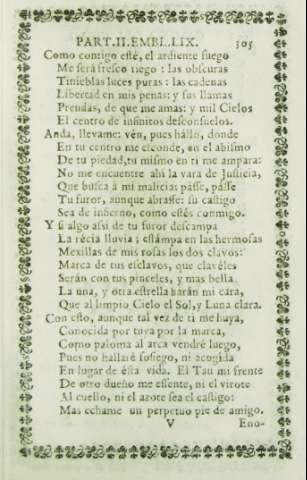 PART.II.EMBL.LIX. 305
Como contigo esté, el ardiente fuego
Me será fresco riego : las obscuras
Tinieblas luces puras : las cadenas
Libertad en mis penas: y sus llamas
Prendas, de que me amas: y mil Cielos
El centro de infinitos desconsuelos.
Anda, llevame: vén, pues hallo, donde
En tu centro me esconde, en el abismo
De tu piedad, tu mismo en ti me ampara:
No me encuentre ahi la vara de Justicia,
Que busca à mi malicia: pásse, pásse
Tu furor, aunque abrasse: su castigo
Sea de infierno, como estés conmigo.
Y si algo assi de tu furor descampa
La récia lluvia; estámpa en las hermosas
Mexillas de mis rosas los dos clavos:
Marca de tus esclavos, que clavéles
Serán con tus pinceles, y mas bella
La una, y otra estrella harán mi cara,
Que al limpio Cielo el Sol, y Luna clara.
Con esto, aunque tal vez de ti me huya,
Conocida por tuya por la marca,
Como paloma al arca vendré luego,
Pues no hallaré sosiego, ni acogida
En lugar de ésta vida. El Tau mi frente
De otro dueño me essente, ni el virote
Al cuello, ni el azote sea el castigo:
Mas echame un perpetuo pie de amigo.
V Eno-